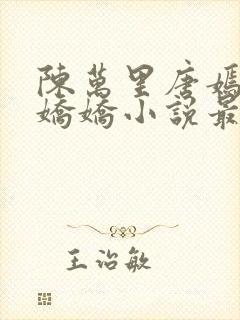 陳萬里唐嫣
嬌嬌小說最
王治敏